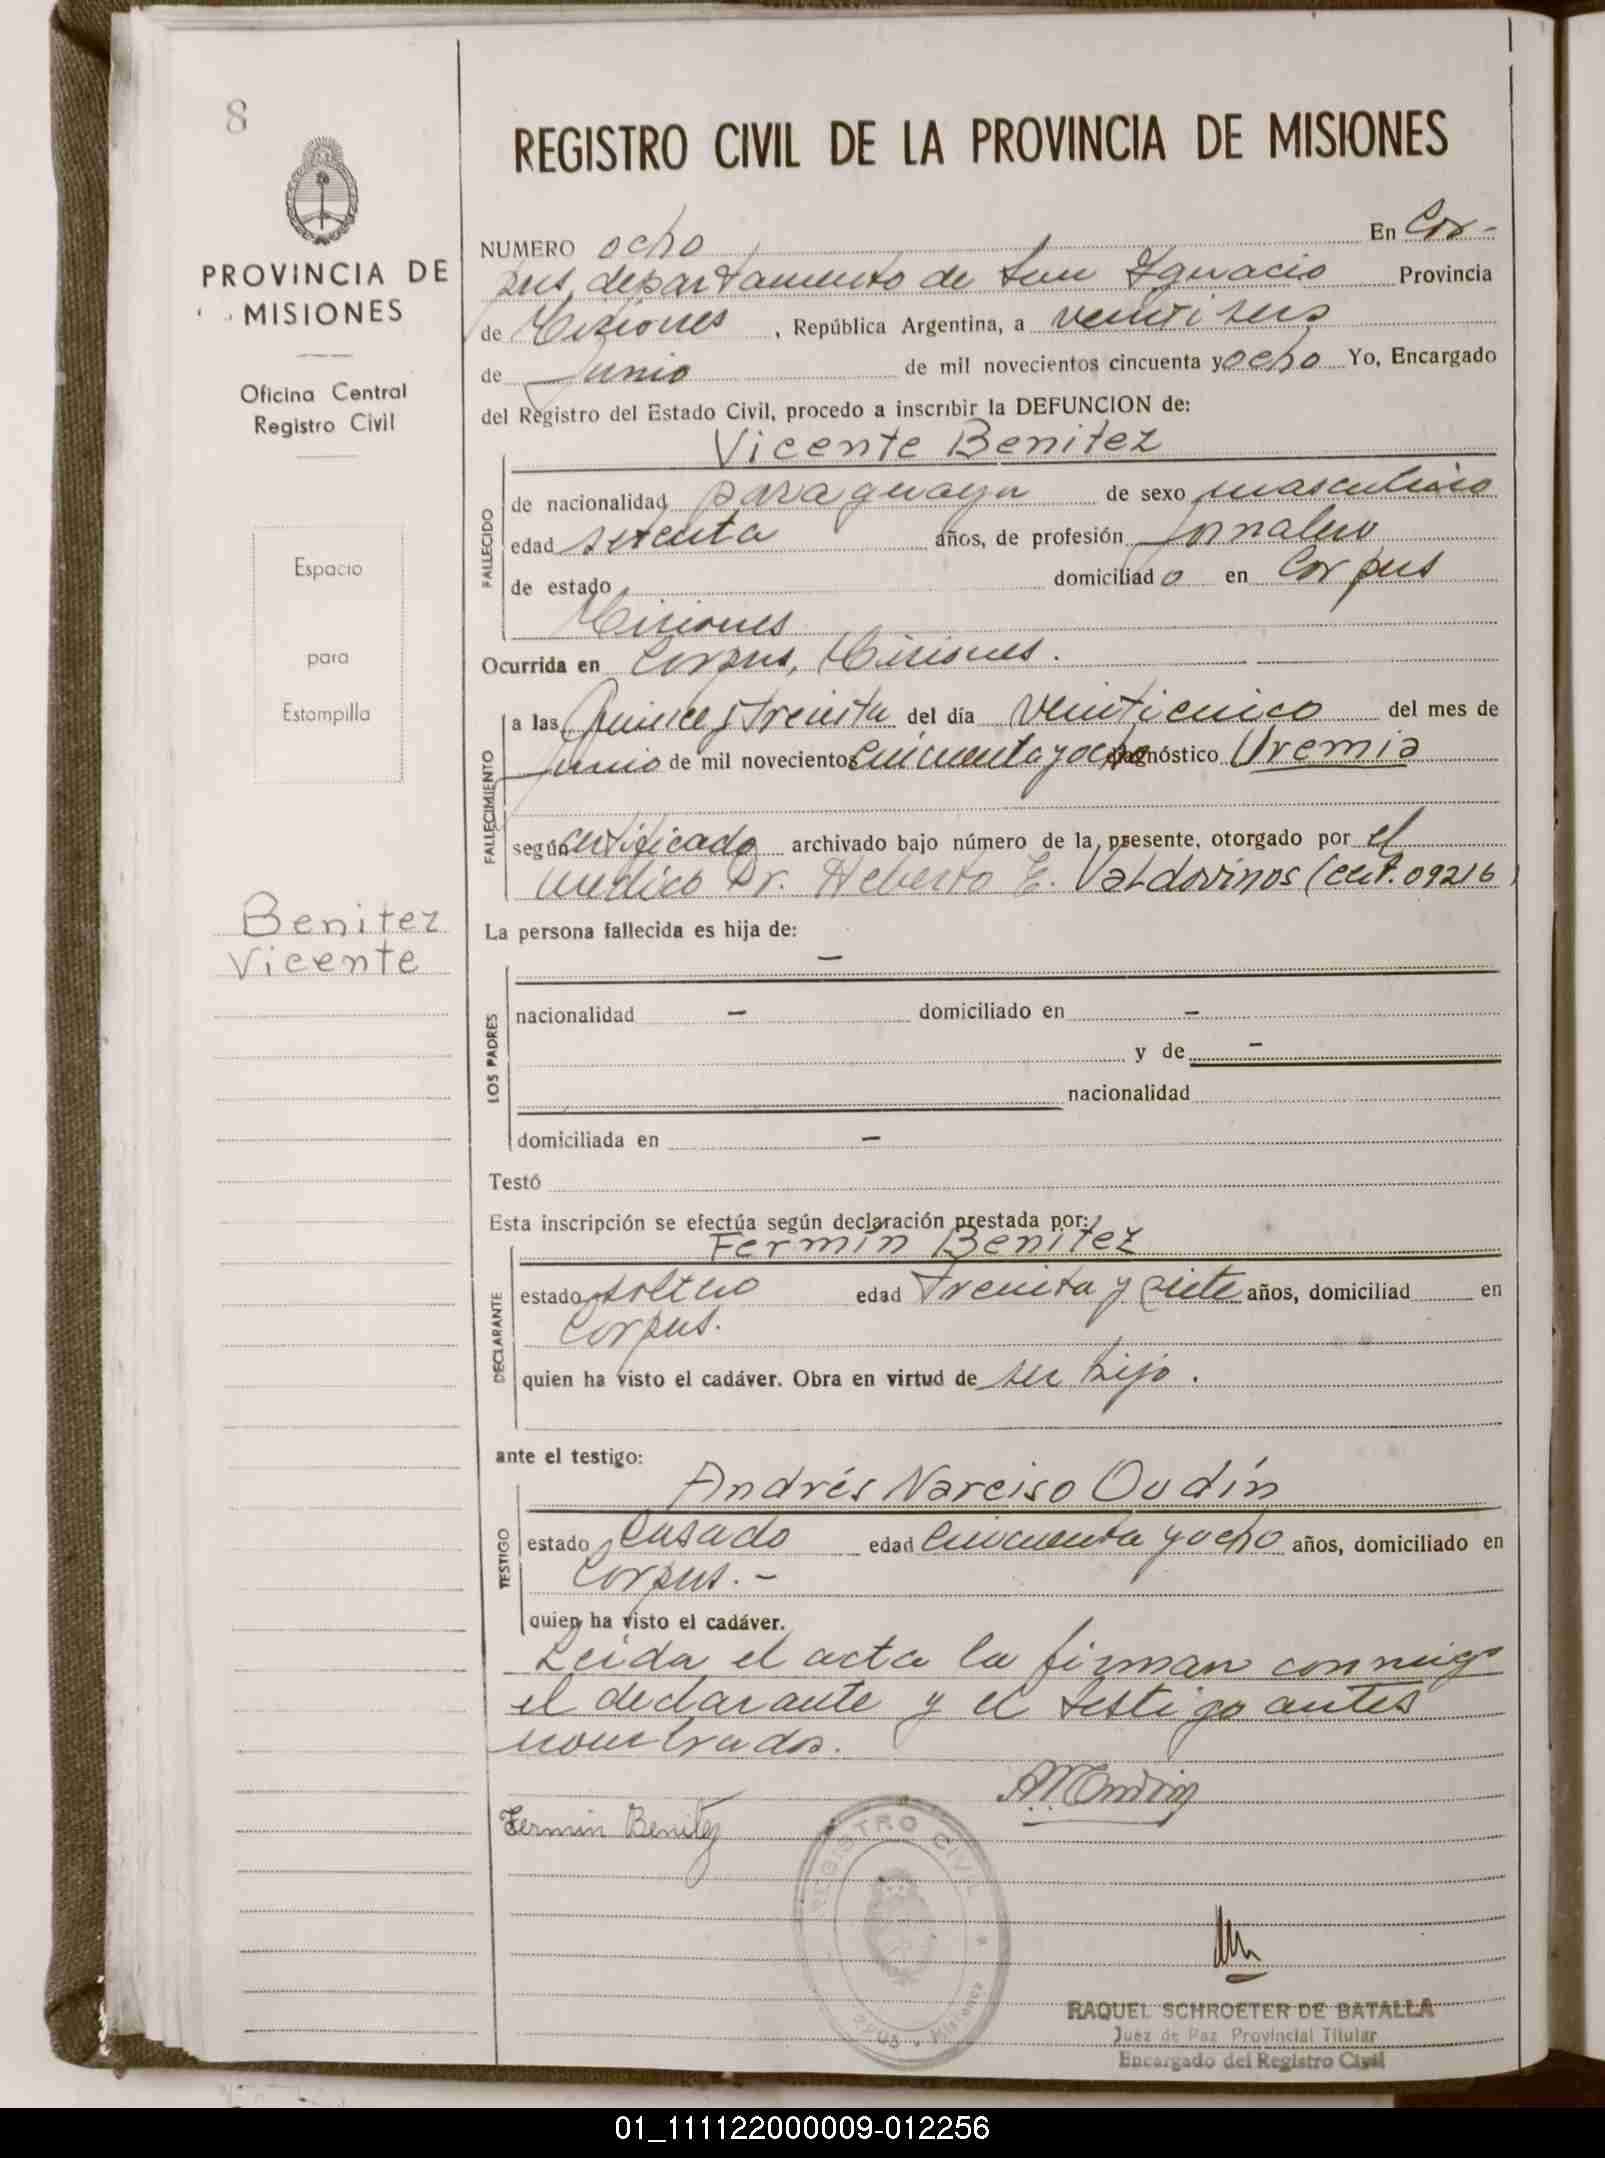 8
PROVINCIA DE
MISIONES
Oficina Central
Registro Civil
Espacio
para
Estampilla
Benitez
Vicente
REGISTRO CIVIL DE LA PROVINCIA DE MISIONES
NUMERO ocho En Cor-
pus, departamento de San Ignacio Provincia
de Misiones, República Argentina, a veintiseis
de Junio de mil novecientos cincuenta y ocho Yo, Encargado
del Registro del Estado Civil, procedo a inscribir la DEFUNCION de:
Vicente Benitez
FALLECIDO
de nacionalidad paraguaya de sexo masculino
edad años, de profesión Jornalero
de estado domiciliado en Corpus
Misiones
Ocurrida en Corpus, Misiones.
FALLECIMIENTO
a las Quince y treinta del día veinticinco del mes de
Junio de mil novecientos cincuenta y ocho diagnóstico Uremia
según certificado archivado bajo número de la presente, otorgado por el
medico Dr. Heberto E. Valdovinos (cert. 09216)
La persona fallecida es hija de:
-
LOS PADRES
nacionalidad - domiciliado en -
y de -
nacionalidad
domiciliada en -
Testó
Esta inscripción se efectúa según declaración prestada por:
Fermín Benitez
DECLARANTE
estado soltero edad treinta y siete años, domiciliad en
Corpus.
quien ha visto el cadáver. Obra en virtud de ser hijo.
ante el testigo:
Andrés Narciso Oudín
TESTIGO
estado Casado edad cincuenta y ocho años, domiciliado en
Corpus.-
quien ha visto el cadáver.
Leida el acta la firman conmigo
el declarante y el testigo antes
nombrados.
Fermin Benitez
REGISTRO CIVIL
RAQUEL SCHROETER DE BATALLA
Juez de Paz Provincial Titular
Encargado del Registro Civil
01_111122000009-012256